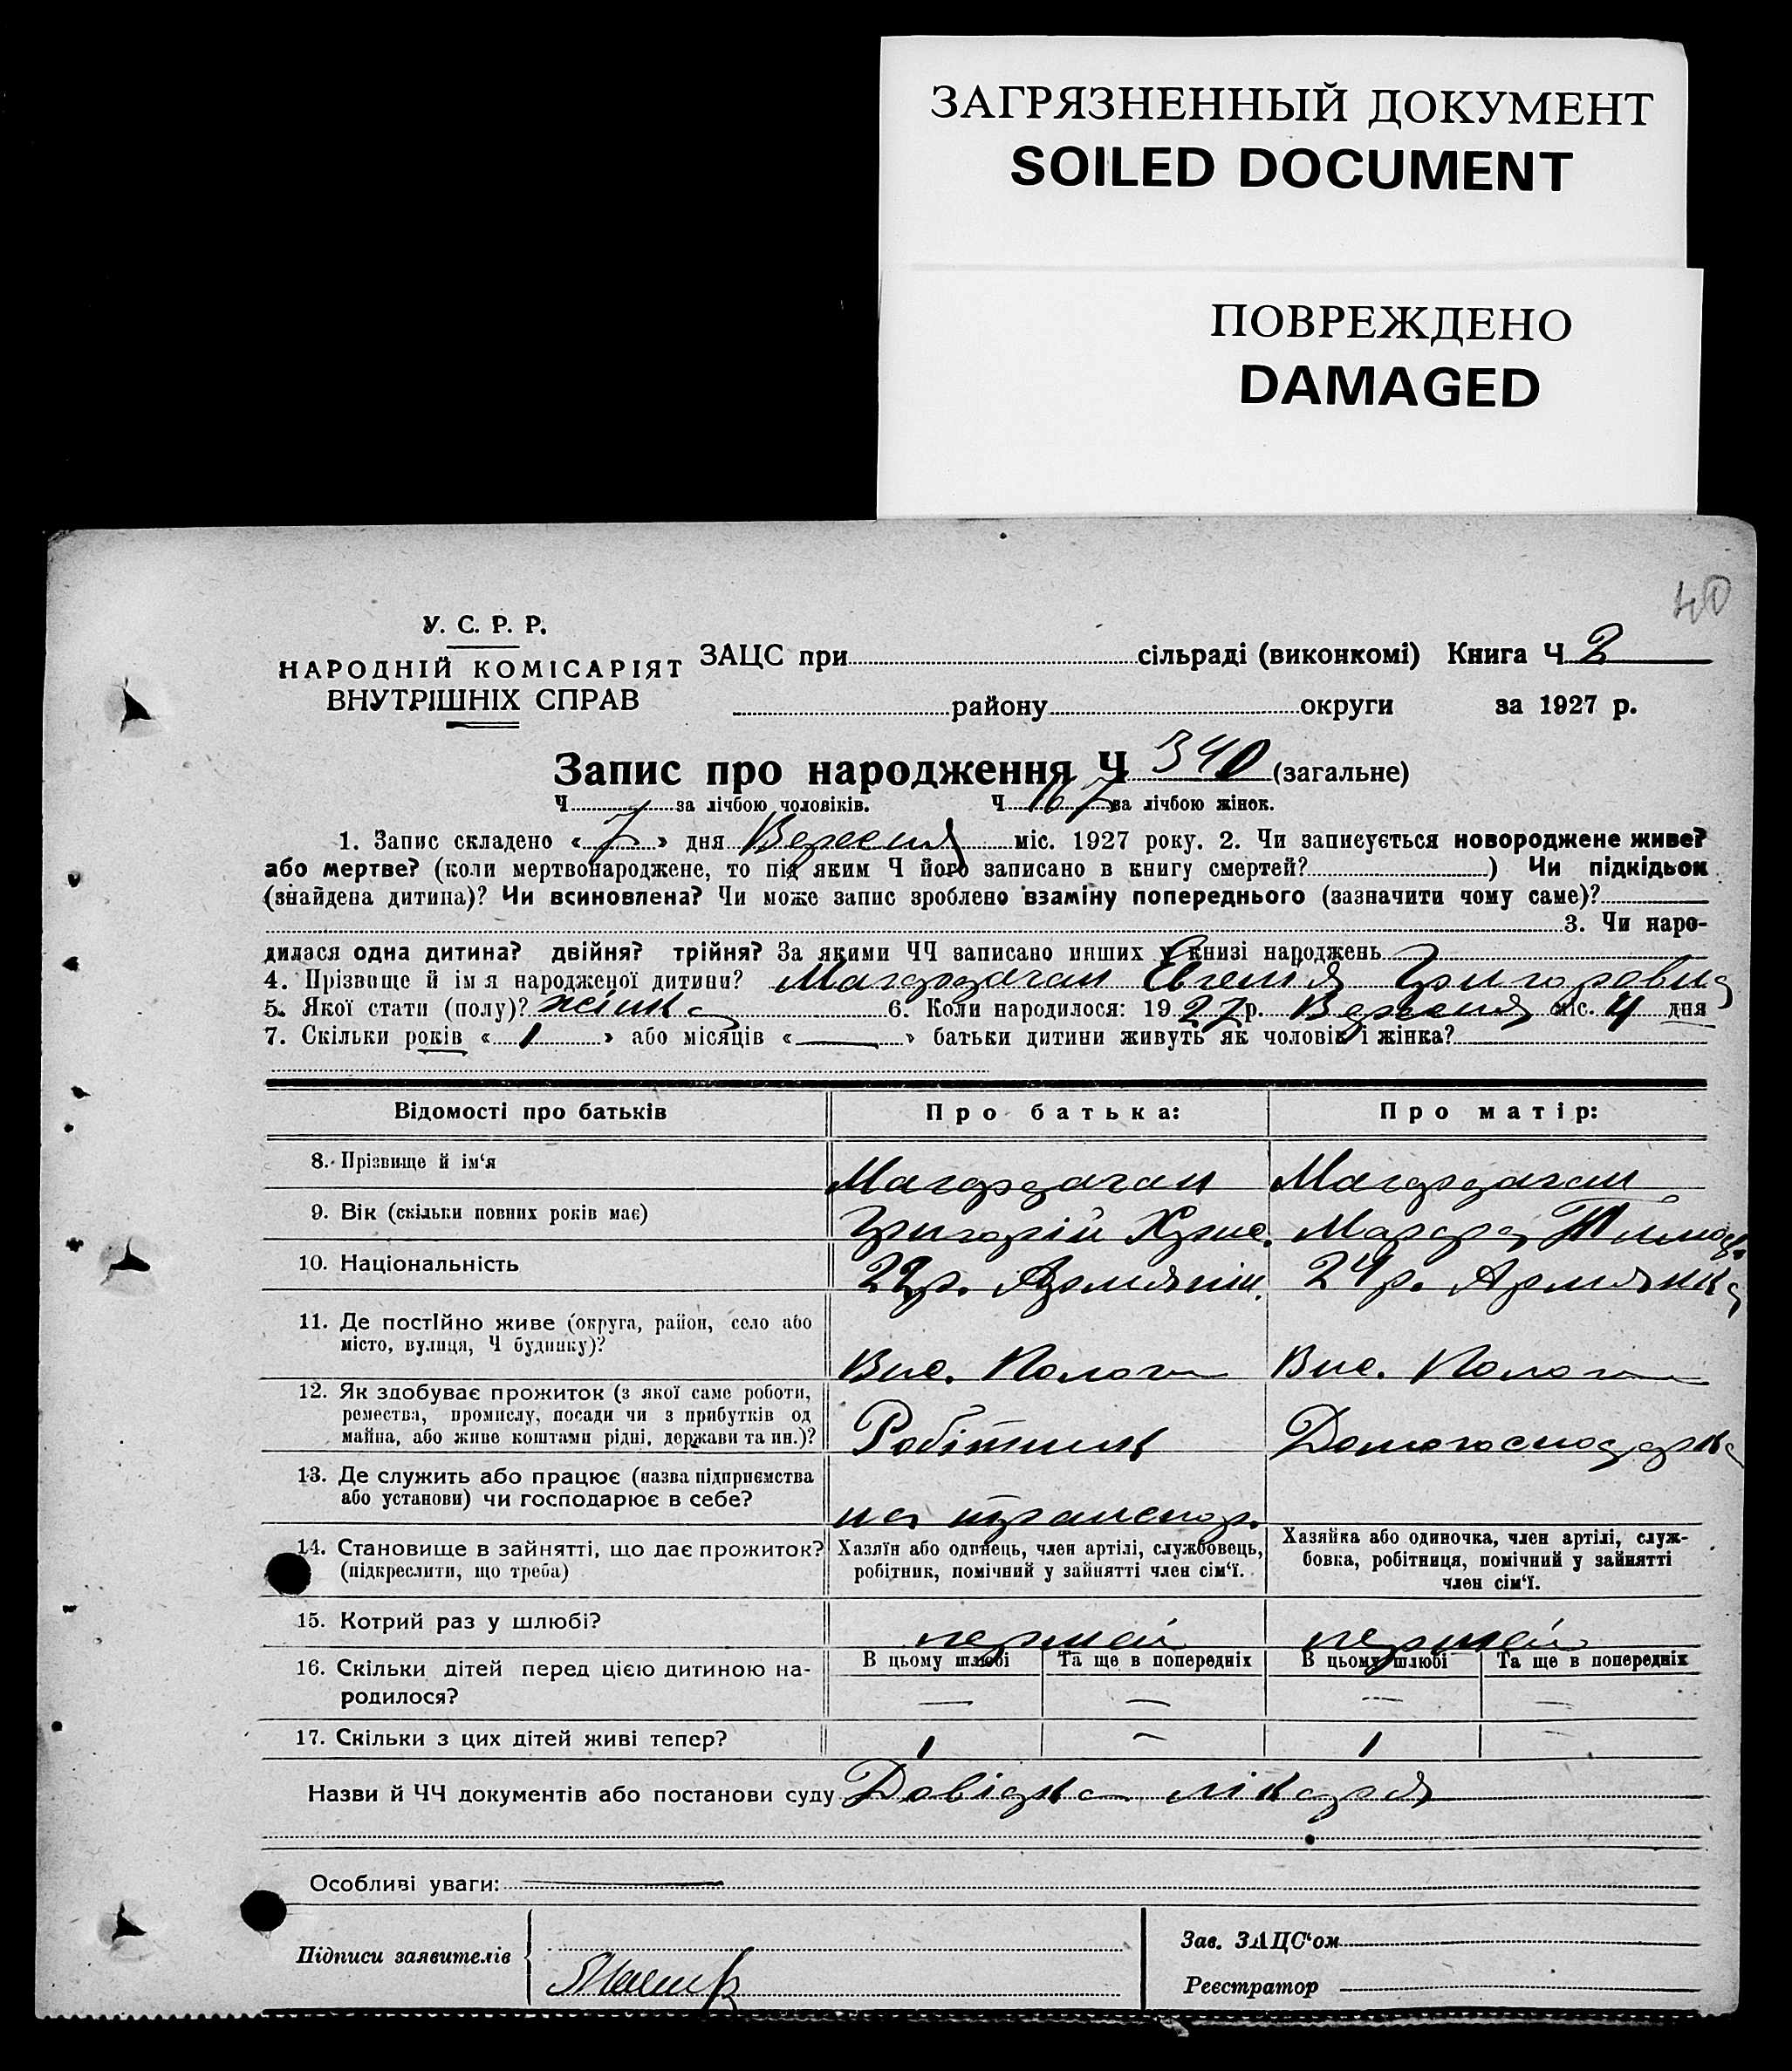 ЗАГРЯЗНЕННЫЙ ДОКУМЕНТ
SOILED DOCUMENT
ПОВРЕЖДЕНО
DAMAGED
40
У. С. Р. Р.
НАРОДНІЙ КОМІСАРІЯТ
ВНУТРІШНІХ СПРАВ
ЗАЦС при сільраді (виконкомі) Книга Ч 2
району округи за 1927 р.
Запис про народження Ч 340 (загальне)
Ч за лічбою чоловіків. Ч 167 за лічбою жінок.
1. Запис складено « 7 » дня Вересня міс. 1927 року. 2. Чи записується новороджене живе?
або мертве? (коли мертвонароджене, то під яким Ч його записано в книгу смертей? ) Чи підкідьок
(знайдена дитина)? Чи всиновлена? Чи може запис зроблено взаміну попереднього (зазначити чому саме)?
3. Чи наро-
дилася одна дитина? двійня? трійня? За якими ЧЧ записано инших у книзі народжень
4. Прізвище й імя народженої дитини? Евгенія Григоровна
5. Якої стати (полу)? жінка 6. Коли народилося: 1927 р. Вересня міс. 4 дня
7. Скільки років « 1 » або місяців « — » батьки дитини живуть як чоловік і жінка?
Відомості про батьків Про батька: Про матір:
8. Прізвище й ім‘я
9. Вік (скільки повних років має) Григорій
10. Національність 22 р. Армянин. 24 р. Армянка
11. Де постійно живе (округа, район, село або
місто, вулиця, Ч будинку)? Вис. Пологи Вис. Пологи
12. Як здобуває прожиток (з якої саме роботи,
ремества, промислу, посади чи з прибутків од
майна, або живе коштами рідні, держави та ин.)? Робітник Домогосподарка
13. Де служить або працює (назва підприємства
або установи) чи господарює в себе? на транспор.
14. Становище в зайнятті, що дає прожиток? Хазяїн або одинець, член артілі, службовець, Хазяйка або одиночка, член артілі, служ-
(підкреслити, що треба) робітник, помічний у зайнятті член сім‘ї. бовка, робітниця, помічний у зайнятті
член сім‘ї.
15. Котрий раз у шлюбі? перший перший
16. Скільки дітей перед цією дитиною на- В цьому шлюбі Та ще в попередніх В цьому шлюбі Та ще в попередніх
родилося? — — — —
17. Скільки з цих дітей живі тепер? 1 — 1 —
Назви й ЧЧ документів або постанови суду Довідка лікаря
Особливі уваги:
Підписи заявителів
Зав. ЗАЦС‘ом
Реєстратор